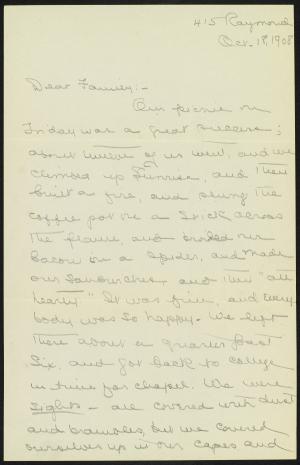 415 Raymond
Oct. 18, 1908
Dear Family:-
Our picnic on
Friday was a great success;
about twelve of us went, and we
climbed up Sunrise, and then
built a fire, and slung the
coffee pot on a stick across
the flame, and broiled our
bacon on a spider, and made
our sandwiches and then "ate
hearty." It was fine, and every
body was so happy. We left
there about a quarter past
six, and got back to college
in time for chapel. We were
sights - all covered with dust
and brambles, but we covered
ourselves up in our capes and